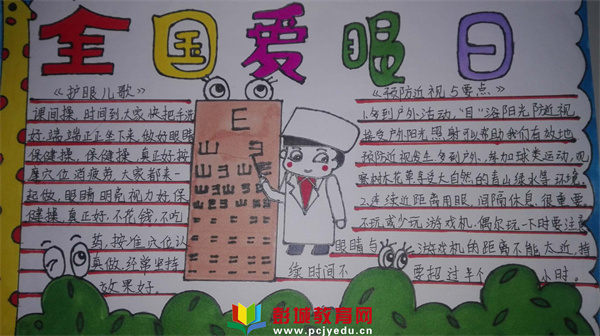 全国爱眼日
《护眼儿歌》
课间操,时间到大家快把手洗
好,端端正正坐下来,做好眼睛
保健操,保健操,真正好,按
摩穴位消疲劳,大家都来一
起做,眼睛明亮视力好,保
健操,真正好,不花钱,不吃
药,按准穴位认
真做,经常坚持
效果好。
E
山
《预防近视5要点》
1.多到户外活动,"目"浴阳光防近视,
接受户外阳光照射可以帮助我们有效地
预防近视发生,多到户外,参加球类运动,观
察树木花草,享受大自然的青山绿水等环境。
2.连续近距离用眼,间隔休息很重要
不玩或少玩游戏机,偶尔玩一下时要注意
眼睛与游戏机的距离不能太近,持
续时间不要超过半个小时。
彭城教育网
www.pcjyedu.cn